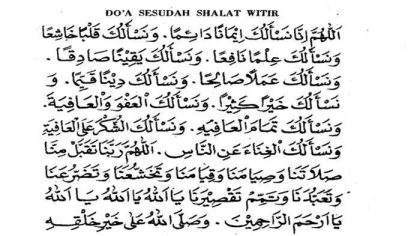 DO'A SESUDAH SHALAT WITIR
اَللّٰهُمَّ اِنَّا نَسْأَلُكَ اِيْمَانًا دَائِمًا. وَنَسْأَلُكَ قَلْبًا خَاشِعًا
وَنَسْأَلُكَ عِلْمًا نَافِعًا. وَنَسْأَلُكَ يَقِيْنًا صَادِقًا.
وَنَسْأَلُكَ عَمَلًا صَالِحًا. وَنَسْأَلُكَ دِيْنًا قَيِّمًا. وَ
نَسْأَلُكَ خَيْرًا كَثِيْرًا. وَنَسْأَلُكَ الْعَفْوَ وَالْعَافِيَةَ.
وَنَسْأَلُكَ تَمَامَ الْعَافِيَهِ. وَنَسْأَلُكَ الشُّكْرَ عَلَى الْعَافِيَةِ
وَنَسْأَلُكَ الْغِنَاءَ عَنِ النَّاسِ. اَللّٰهُمَّ رَبَّنَا تَقَبَّلْ مِنَّا
صَلَاتَنَا وَصِيَامَنَا وَقِيَامَنَا وَتَخَشُّعَنَا وَتَضَرُّعَنَا
وَتَعَبُّدَنَا وَتَمِّمْ تَقْصِيْرَنَا يَا اَللهُ يَا اَللهُ يَا اَللهُ
يَا اَرْحَمَ الرَّاحِمِيْنَ. وَصَلَّى اللهُ عَلَى خَيْرِ خَلْقِهِ